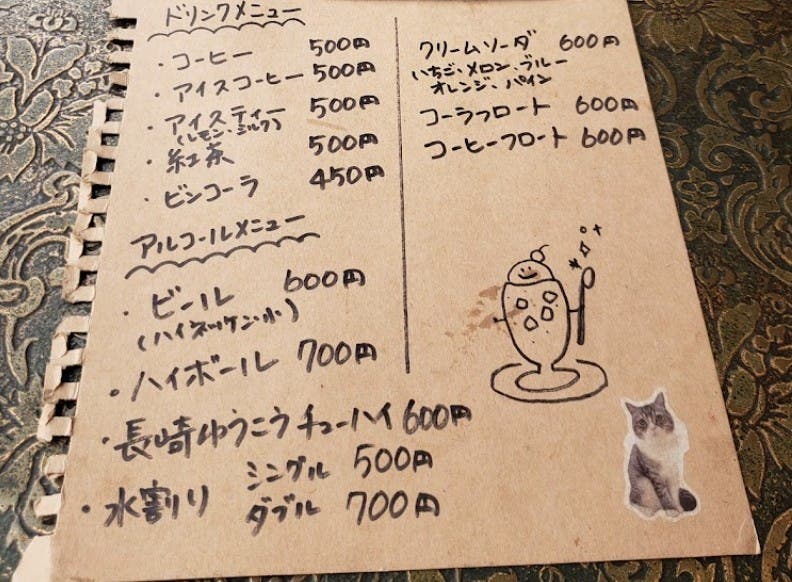 ドリンクメニュー
・コーヒー 500円
・アイスコーヒー 500円
・アイスティー 500円
(レモン、ミルク)
・紅茶 500円
・ビンコーラ 450円
アルコールメニュー
・ビール 600円
(ハイネッケン小)
・ハイボール 700円
・長崎ゆうこうチューハイ 600円
・水割り シングル 500円
ダブル 700円
クリームソーダ 600円
いちご、メロン、ブルー
オレンジ、パイン
コーラフロート 600円
コーヒーフロート 600円